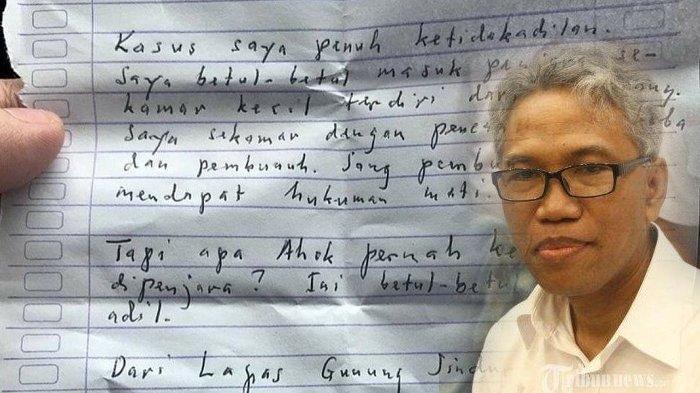 Kasus saya penuh ketidakadilan.
Saya betul-betul masuk penjara se-
kamar kecil terdiri dari
Saya sekamar dengan
dan pembunuh. Sang
mendapat hukuman mati.
Tapi apa Ahok pernah
dipenjara? Ini betul-betul
adil.
Dari Lapas Gunung Sindur
Tribunnews.com